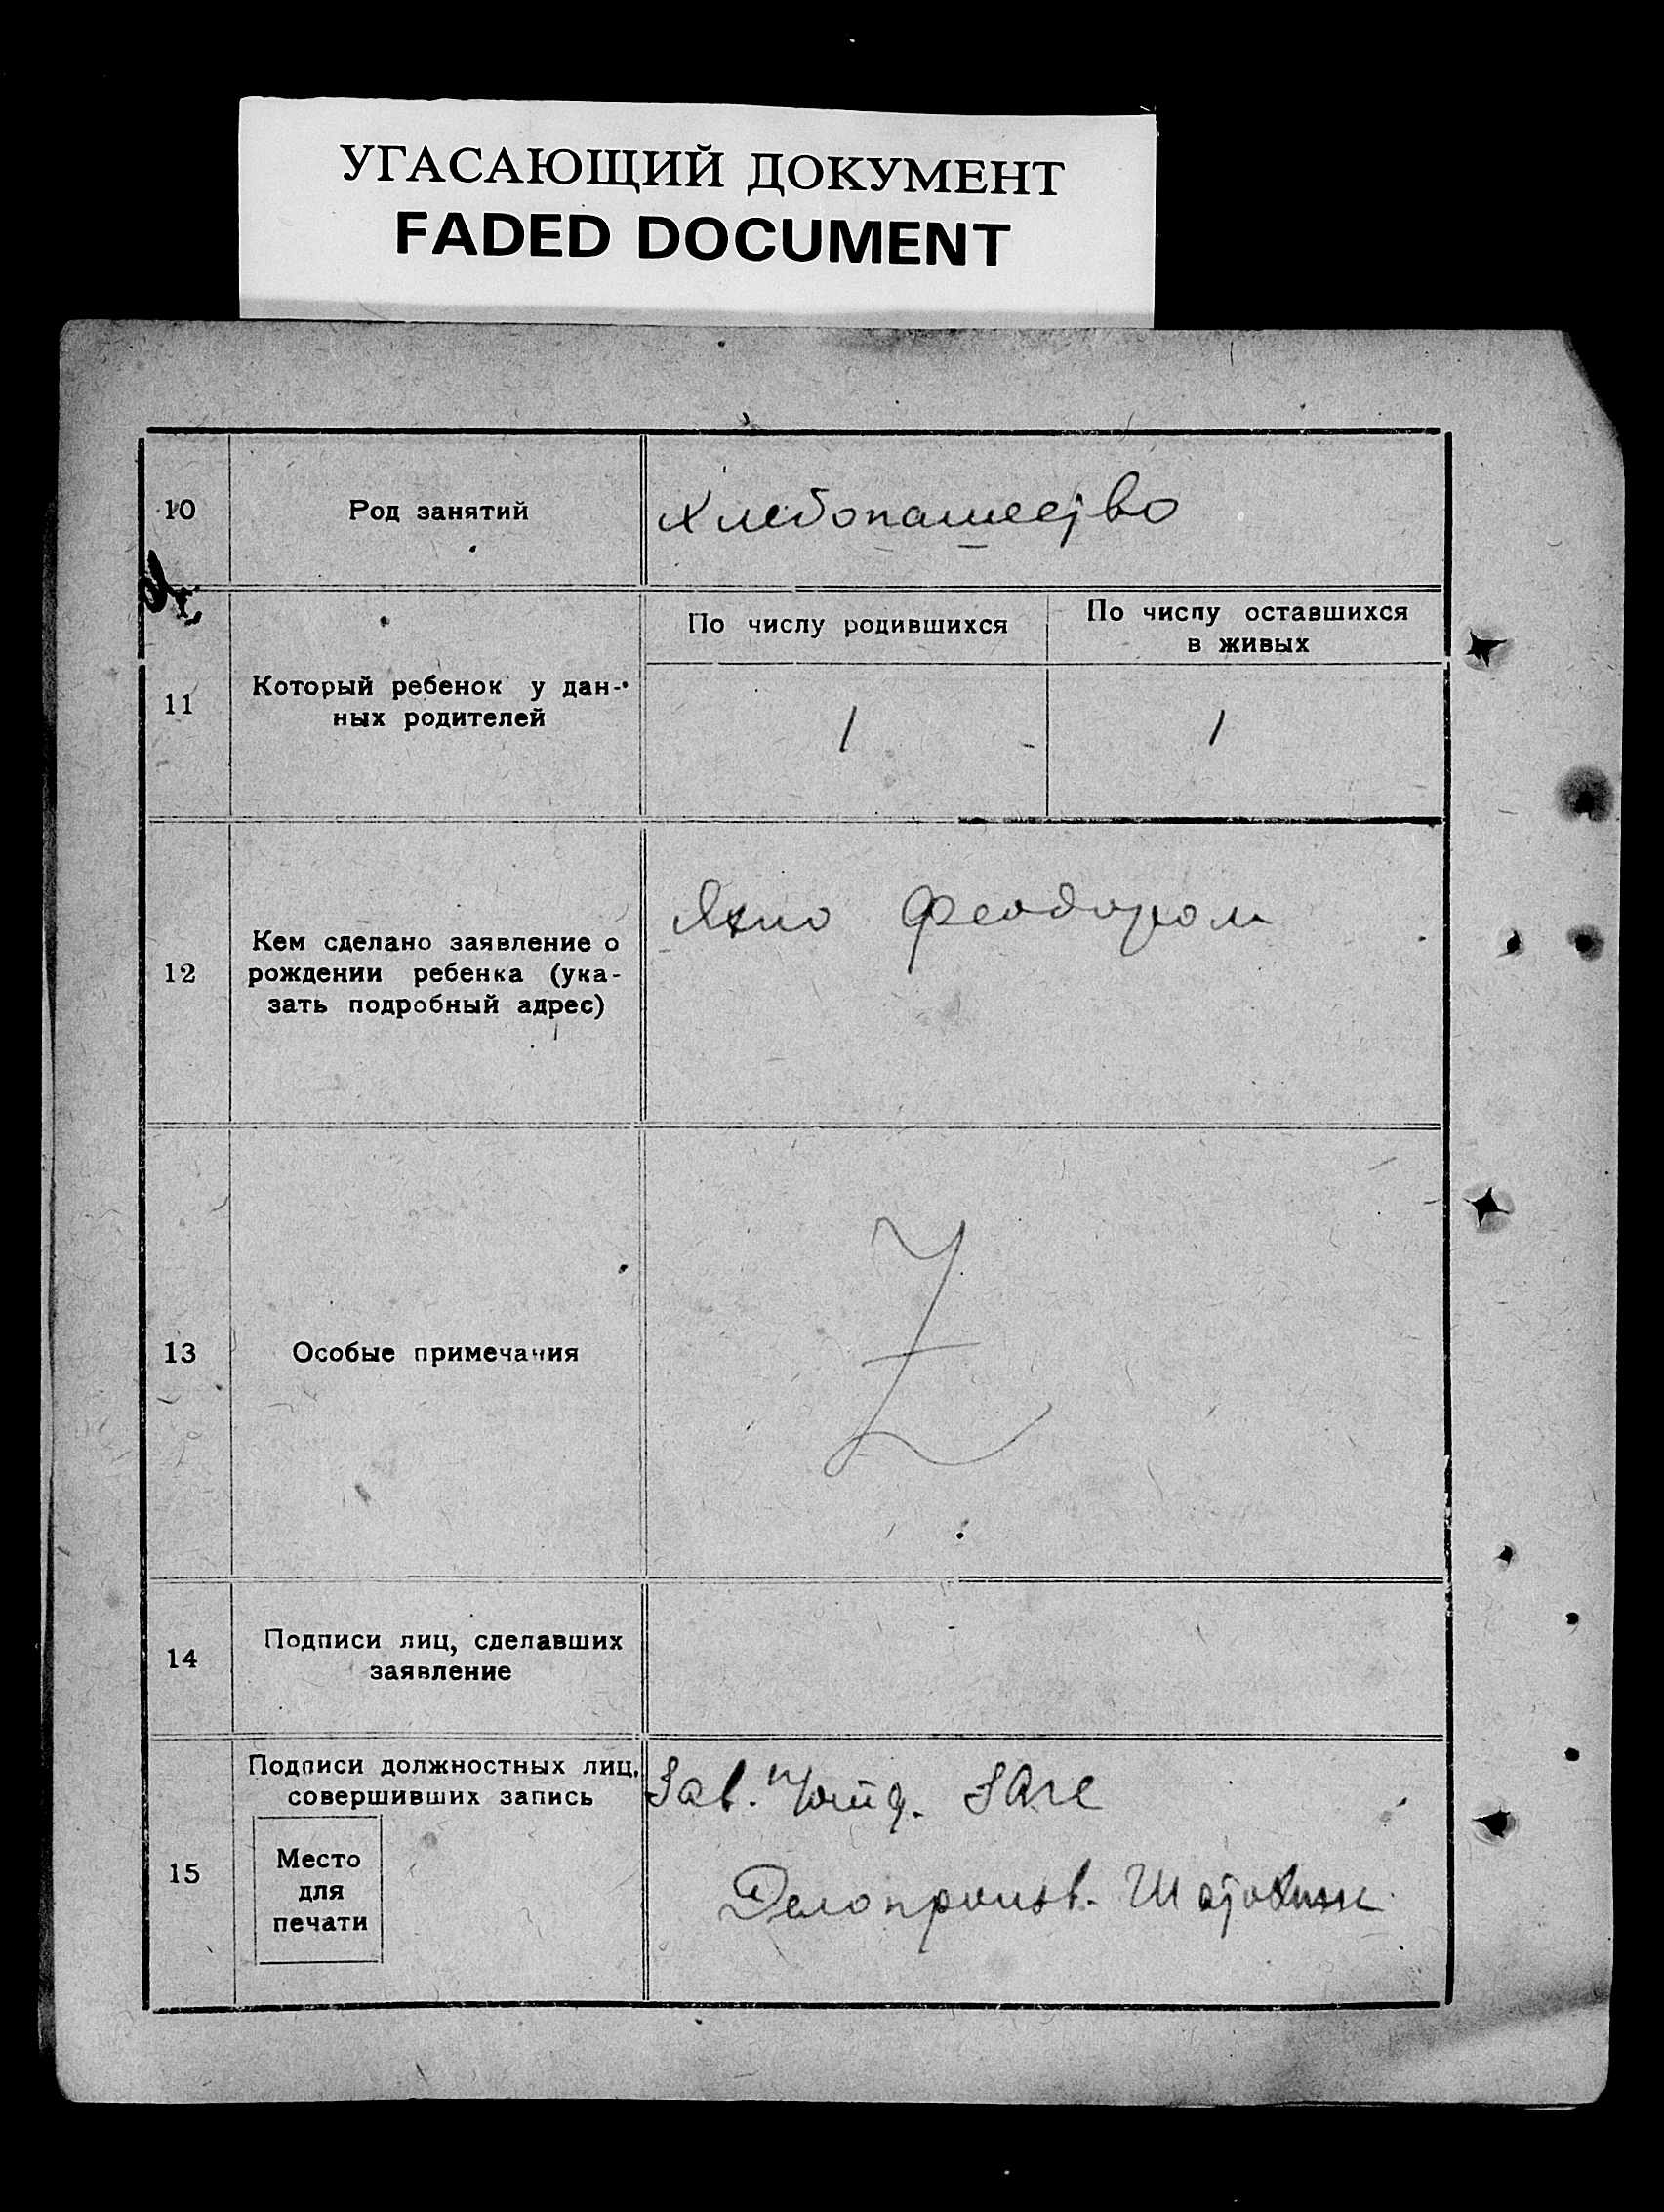 УГАСАЮЩИЙ ДОКУМЕНТ
FADED DOCUMENT
10
Род занятий
Хлебопашество
11
Который ребенок у дан-
ных родителей
По числу родившихся
По числу оставшихся
в живых
1
1
12
Кем сделано заявление о
рождении ребенка (ука-
зать подробный адрес)
Яхно Феодором
13
Особые примечания
Z
14
Подписи лиц, сделавших
заявление
15
Подписи должностных лиц,
совершивших запись
Место
для
печати
Зав.
Делопроизв.